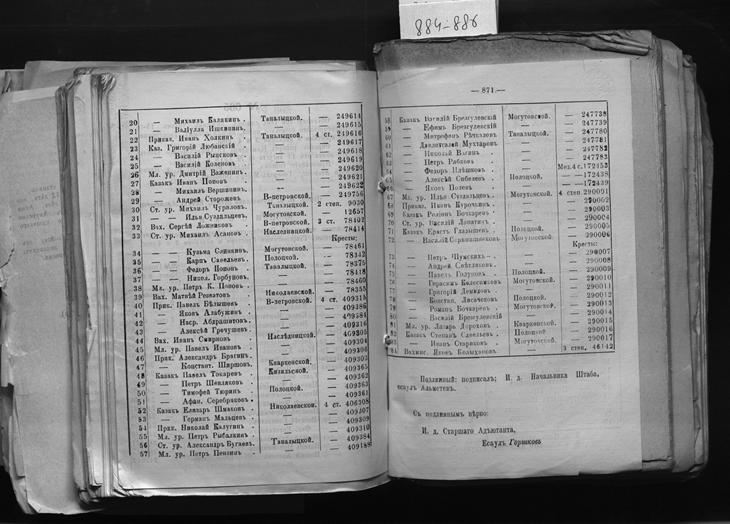 884-886
20 — Михаилъ Калякинъ. Таналыцкой. — 249614
21 — Валіулла Ишенининъ. — — 249615
22 Приказ. Иванъ Холкинъ. Таналыцкой. 4 ст. 249616
23 Каз. Григорій Любанскій — — 249617
24 — Василій Рысковъ. — — 249618
25 — Василій Козековъ. — — 249619
26 Мл. ур. Дмитрій Важенинъ. — — 249620
27 Казакъ Иванъ Поповъ — — 249621
28 — Михаилъ Вершининъ. — — 249622
29 — Андрей Сторожевъ В-петровской. — 249756
30 Ст. ур. Михаилъ Чураловъ. Таналыцкой. 2 степ. 9030
31 — Илья Суздальцевъ. Могутовской. — 12657
32 Вах. Сергѣй Ложниковъ В-петровской. 3 ст. 78402
33 Ст. ур. Михаилъ Асановъ. Наслѣдницкой. — 78414
Кресты:
34 — Кузьма Слинкинъ. Могутовской. — 78461
35 — Карпъ Савельевъ. Полоцкой. — 78342
36 — Федоръ Поповъ Таналыцкой. — 78375
37 — Никол. Горбуновъ. — — 78418
38 Мл. ур. Петръ К. Поповъ. — — 78460
39 Вах. Матвѣй Резватовъ Николаевской. — 78355
40 Прик. Павелъ Бѣлышевъ В-петровской. 4 ст. 409315
41 — Яковъ Алабужинъ — — 409386
42 — Насыр. Абдрашитовъ. — — 409394
43 — Алексѣй Гречушевъ — 409316
44 Вах. Иванъ Смирновъ Наслѣдницкой. — 409305
45 Мл. ур. Павелъ Ивановъ. — — 409304
46 Прик. Александръ Брагинъ. — — 409303
47 — Констант. Ширшовъ Кваркенской. — 409301
48 Казакъ Павелъ Токаревъ Кизильской. — 409362
49 — Петръ Шевляковъ — — 409363
50 — Тимофей Тюринъ Полоцкой. — 409365
51 — Афан. Серебряковъ. — — 409361
52 Казакъ Елизаръ Шмаковъ Николаевской. 4 ст. 406308
53 — Германъ Мальцевъ — — 409307
54 Прик. Николай Калугинъ — — 409309
55 Мл. ур. Петръ Рыбалкинъ — — 409310
56 Ст. ур. Александръ Бугаевъ Таналыцкой. — 409384
57 Мл. ур. Петръ Пензинъ — — 409188
— 871.—
58 Казакъ Василій Брезгулевскій Могутовской. — 247738
59 — Ефимъ Брезгулевскій — — 247739
60 — Митрофанъ Рѣпкаловъ Таналыцкой. — 247780
61 — Давлетгалей Мухтаровъ — — 247781
62 — Николай Вагинъ — — 247782
63 — Петръ Рябковъ — — 247783
64 — Федоръ Плѣшковъ — Мед. 4 с. 172453
65 — Алексѣй Сибелевъ Полоцкой. — 172438
66 — Яковъ Полевъ — — 172439
67 Мл. ур. Илья Суздальцевъ. Могутовской. 4 степ. 290091
68 Приказ. Иванъ Курочкинъ — — 290002
69 Казакъ Родіонъ Бочкаревъ — — 290003
70 Ст. ур. Василій Лопатинъ — — 290004
71 Казакъ Ерастъ Глазышевъ Полоцкой. — 290005
72 — Василій Скрипниковъ Могутовской — 290006
Кресты:
73 — Петръ Чумскихъ — — 290007
74 — Андрей Свѣтляковъ — — 290008
75 — Павелъ Голуновъ Полоцкой. — 290009
76 — Герасимъ Колесниковъ Могутовской. — 290010
77 — Григорій Демировъ — — 290011
78 — Констан. Лисачевъ Полоцкой. — 290012
79 — Романъ Бочкаревъ Могутовской. — 290013
80 — Василій Брезгулевскій — — 290014
81 Мл. ур. Лазарь Дороховъ Кваркенской. — 290015
82 Казакъ Степанъ Савельевъ Полоцкой — 290016
83 — Иванъ Стариковъ Могутовской. — 290017
84 Вахмис. Яковъ Болыхановъ — 3 степ. 46142
Подлинный подписалъ: И. д. Начальника Штаба,
есаулъ Альметевъ.
Съ подлиннымъ вѣрно:
И. д. Старшаго Адъютанта,
Есаулъ Горшковъ